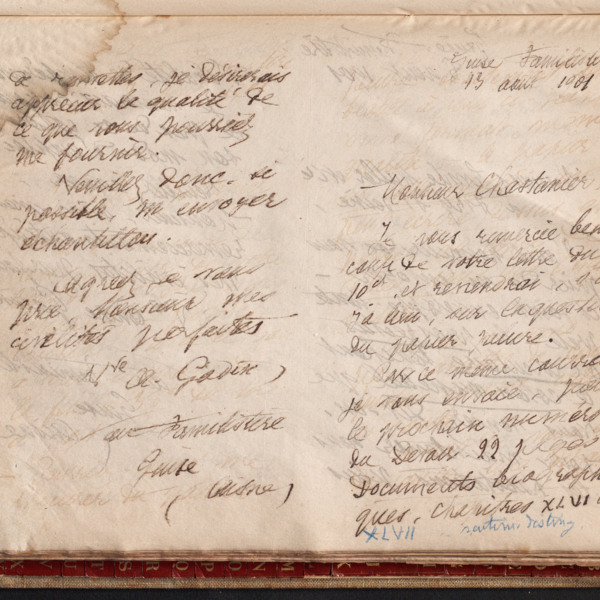 je désirerais
apprécier la qualité de
ce que vous pourriez
me fournir.
Veuillez donc, si
possible, m'envoyer
échantillon.
Agréez, je vous
prie, Monsieur mes
civilités parfaites
Vve A. Godin
au Familistère
Guise
(Aisne)
Guise Familistère
13 août 1901
Monsieur Chastanier
Je vous remercie
de votre lettre du
10 ct, et reviendrai,
du papier
Par ce même courrier
je vous envoie, pour
le prochain numéro
du Devoir 22
Documents biographi-
ques, chapitres XLVI
XLVII